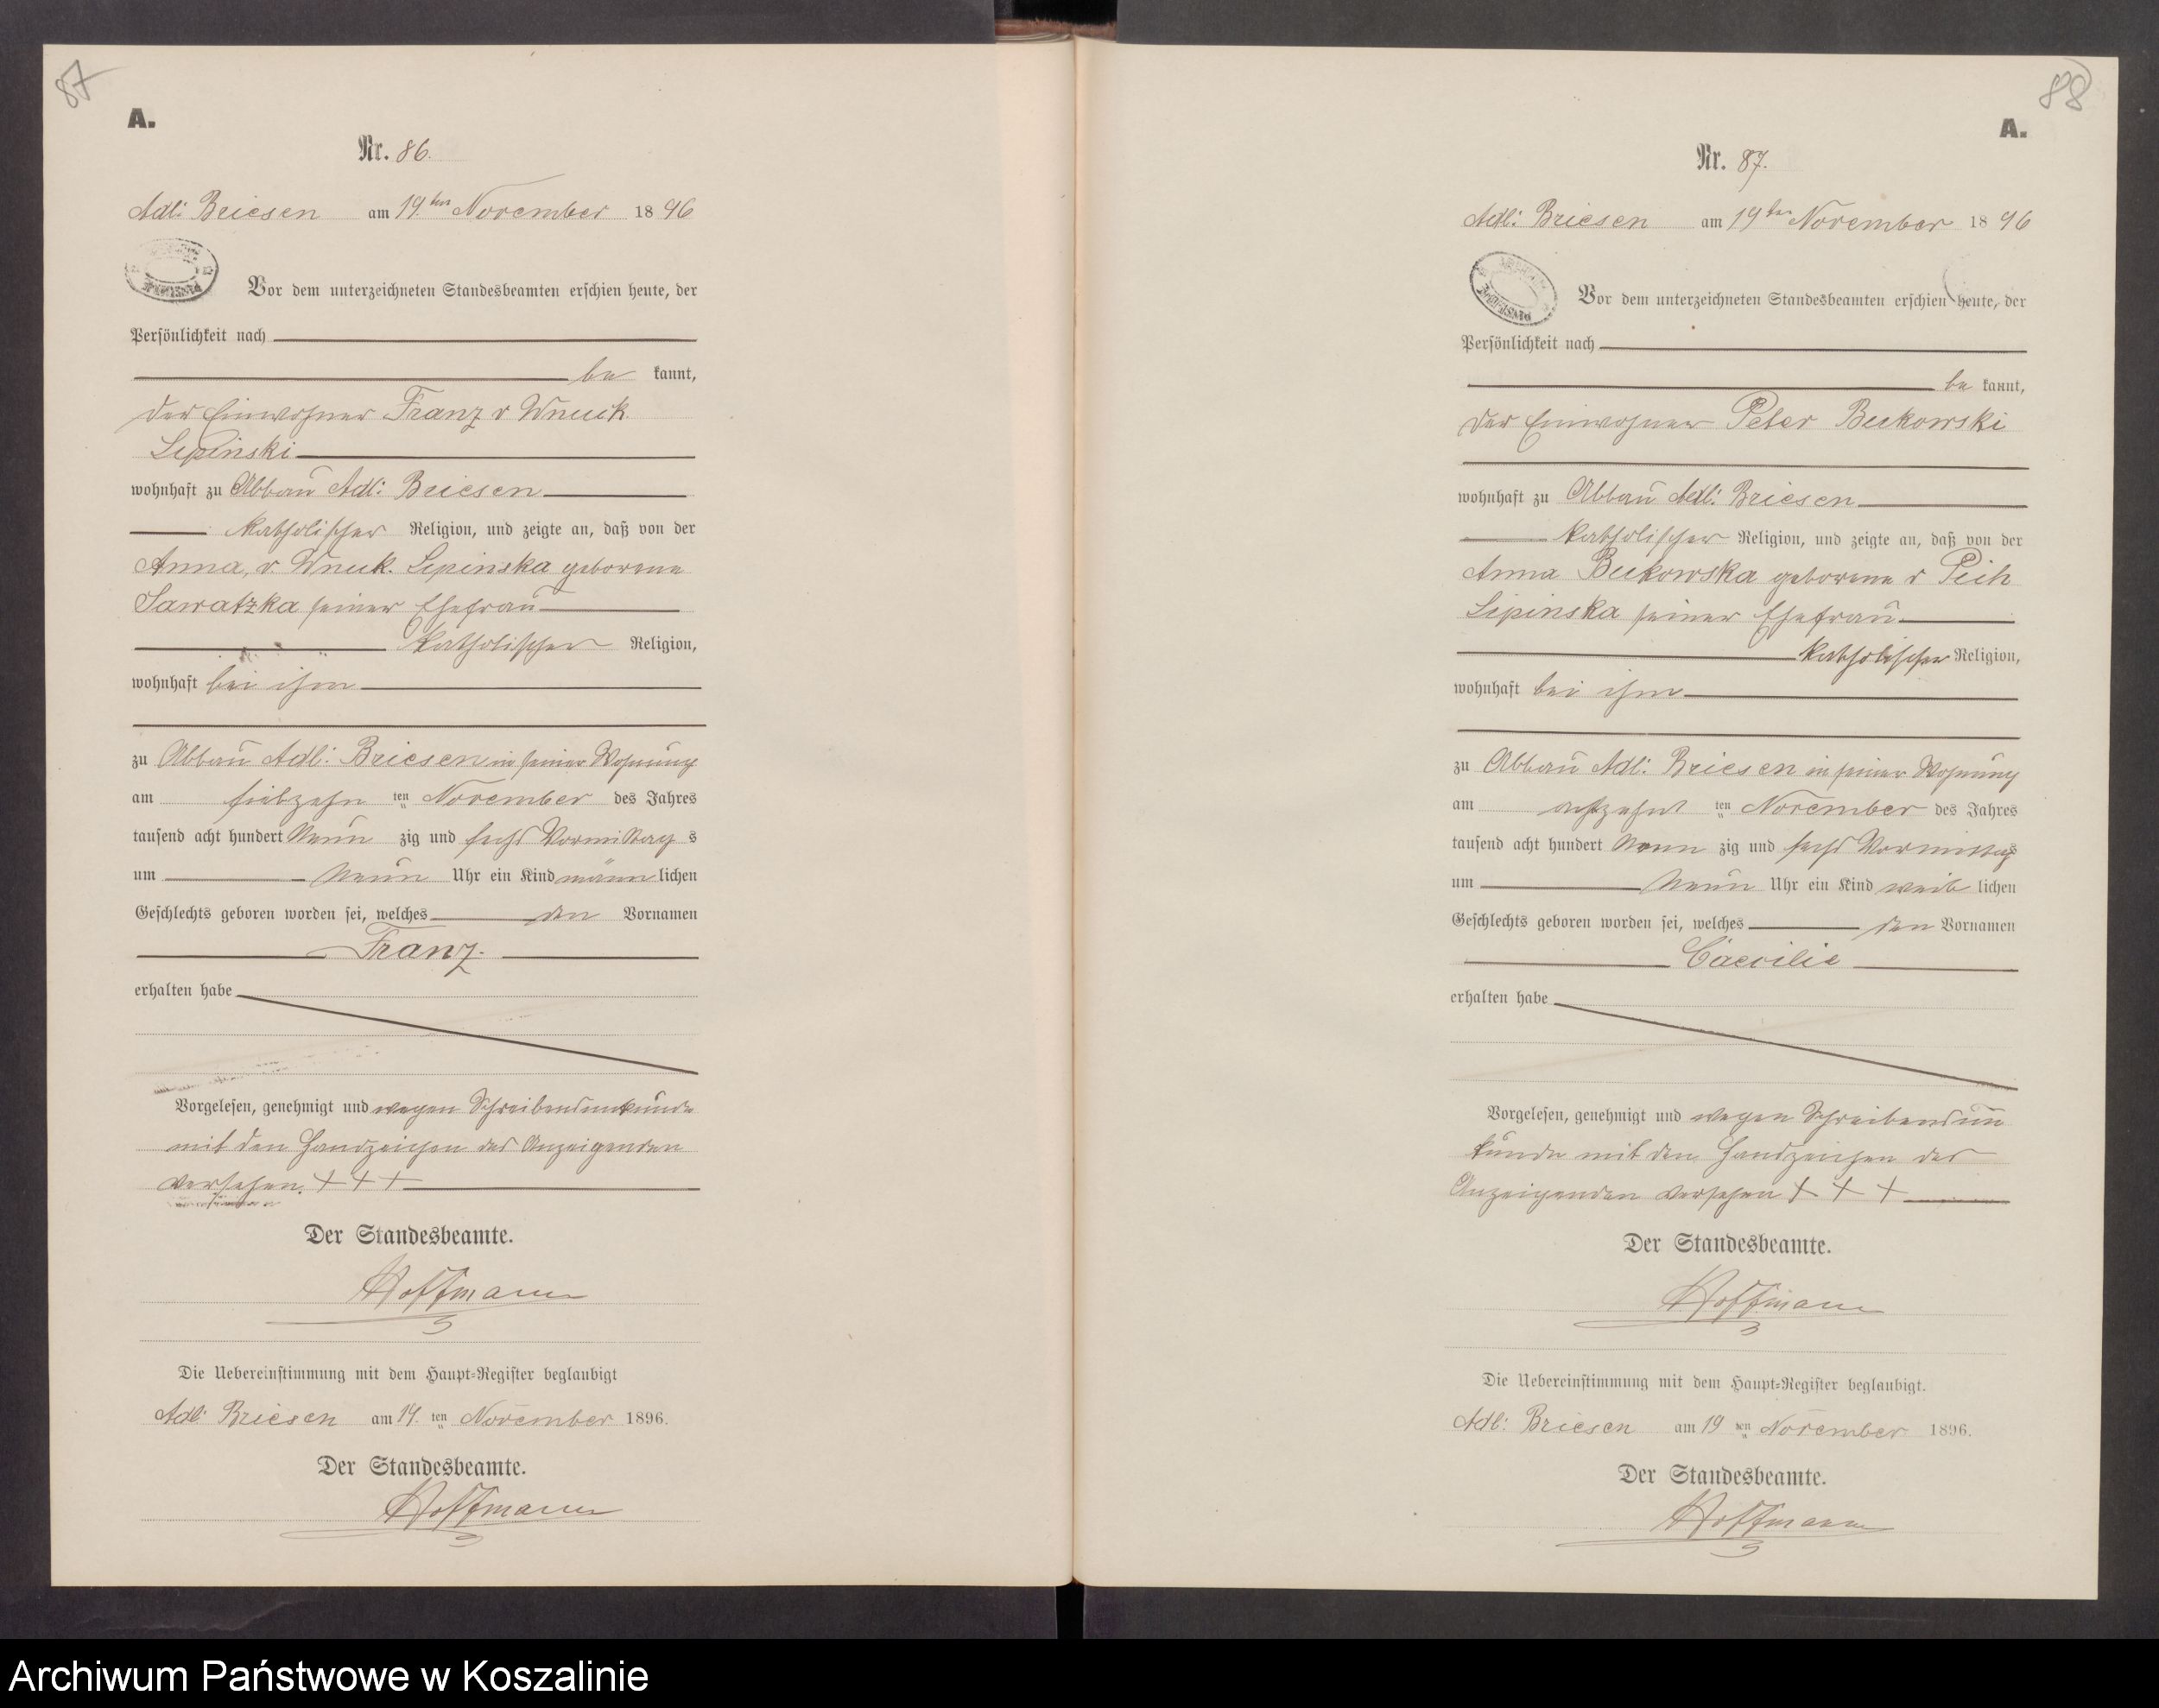 87
A.
Nr. 86.
Adl: Briesen am 19.ten November 1896
Vor dem unterzeichneten Standesbeamten erschien heute, der
Persönlichkeit nach
be kannt,
der Einwohner Franz v Wnuck
Lipinski
wohnhaft zu Abbau Adl: Briesen
katholischer Religion, und zeigte an, daß von der
Anna, v. Wnuk. Lipinska geborene
Sawatzka seiner Ehefrau
katholischer Religion,
wohnhaft bei ihm
zu Abbau Adl: Briesen in seiner Wohnung
am siebzehn ten November des Jahres
tausend acht hundert Neun zig und sechs Vormittag s
um Neun Uhr ein Kind männ lichen
Geschlechts geboren worden sei, welches den Vornamen
Franz.
erhalten habe
Vorgelesen, genehmigt und wegen Schreibensunkunde
mit den Handzeichen des Anzeigenden
versehen. + + +
Der Standesbeamte.
Hoffmann
Die Uebereinstimmung mit dem Haupt-Register beglaubigt
Adl: Briesen am 19. ten November 1896.
Der Standesbeamte.
Hoffmann
88
A.
Nr. 87.
Adl: Briesen am 19ten November 1896
Vor dem unterzeichneten Standesbeamten erschien heute, der
Persönlichkeit nach
be kannt,
der Einwohner Peter Bukowski
wohnhaft zu Abbau Adl: Briesen
katholischer Religion, und zeigte an, daß von der
Anna Bukowska geborene v Pich
Lipinska seiner Ehefrau
katholischer Religion,
wohnhaft bei ihm
zu Abbau Adl: Briesen in seiner Wohnung
am achtzehn ten November des Jahres
tausend acht hundert Neun zig und sechs Vormittags
um Neun Uhr ein Kind weib lichen
Geschlechts geboren worden sei, welches den Vornamen
Cäecilie
erhalten habe
Vorgelesen, genehmigt und wegen Schreibensun
kunde mit den Handzeichen des
Anzeigenden versehen + + +
Der Standesbeamte.
Hoffmann
Die Uebereinstimmung mit dem Haupt-Register beglaubigt.
Adl: Briesen am 19 ten November 1896.
Der Standesbeamte.
Hoffmann
Archiwum Państwowe w Koszalinie